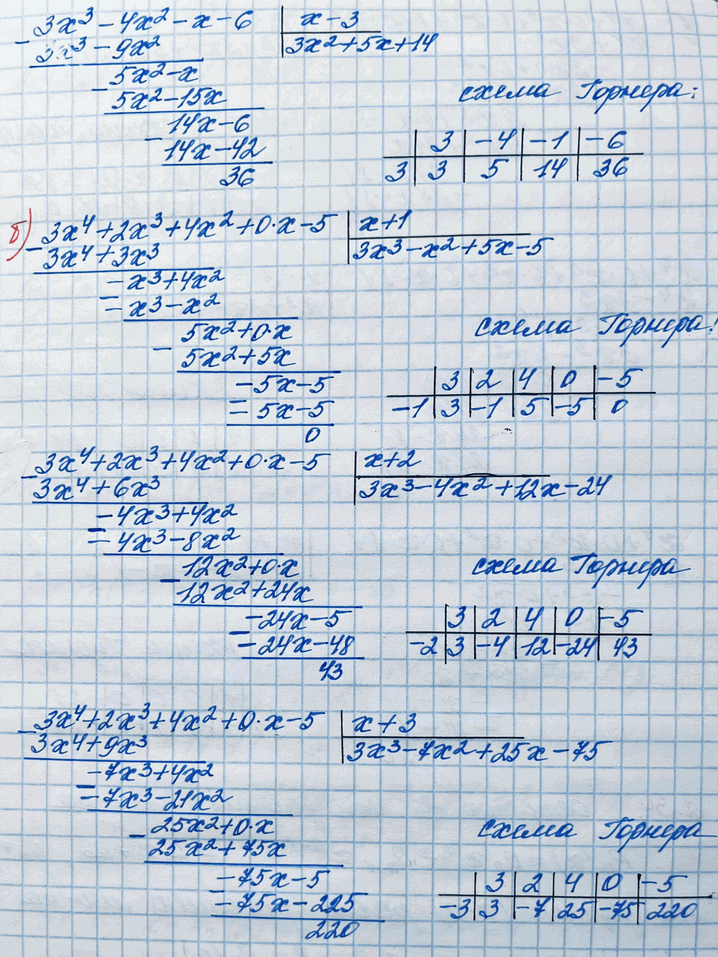 3x³ - 4x² - x - 6 | x - 3
- 3x³ - 9x² | 3x² + 5x + 14
5x² - x
- 5x² - 15x
14x - 6
- 14x - 42
36
схема Горнера:
| 3 | -4 | -1 | -6
3 | 3 | 5 | 14 | 36
б) 3x⁴ + 2x³ + 4x² + 0·x - 5 | x + 1
- 3x⁴ + 3x³ | 3x³ - x² + 5x - 5
- x³ + 4x²
- - x³ - x²
5x² + 0·x
- 5x² + 5x
- 5x - 5
- - 5x - 5
0
схема Горнера:
| 3 | 2 | 4 | 0 | -5
-1 | 3 | -1 | 5 | -5 | 0
3x⁴ + 2x³ + 4x² + 0·x - 5 | x + 2
- 3x⁴ + 6x³ | 3x³ - 4x² + 12x - 24
- 4x³ + 4x²
- - 4x³ - 8x²
12x² + 0·x
- 12x² + 24x
- 24x - 5
- - 24x - 48
43
схема Горнера
| 3 | 2 | 4 | 0 | -5
-2 | 3 | -4 | 12 | -24 | 43
3x⁴ + 2x³ + 4x² + 0·x - 5 | x + 3
- 3x⁴ + 9x³ | 3x³ - 7x² + 25x - 75
- 7x³ + 4x²
- - 7x³ - 21x²
25x² + 0·x
- 25x² + 75x
- 75x - 5
- - 75x - 225
220
схема Горнера
| 3 | 2 | 4 | 0 | -5
-3 | 3 | -7 | 25 | -75 | 220